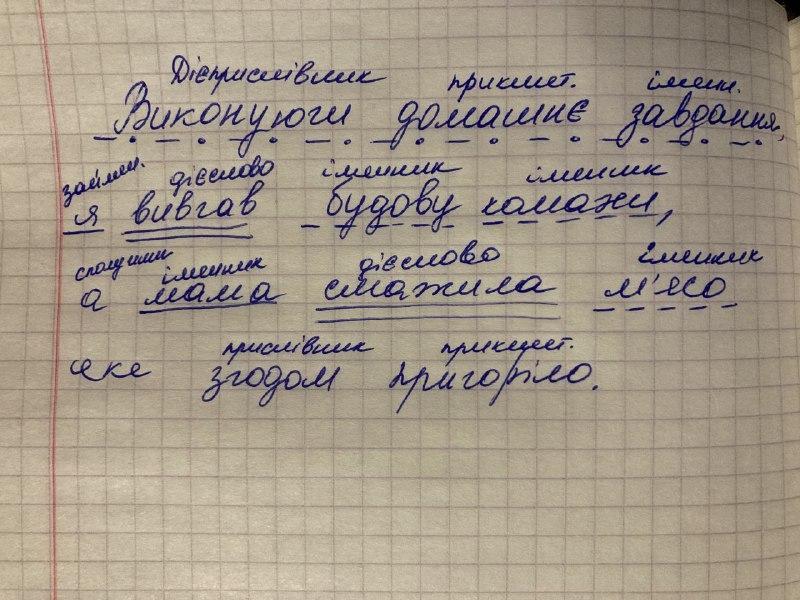 Дієприслівник прикмет. іменн.
Виконуючи домашнє завдання,
займен. дієслово іменник іменник
я вивчав будову комахи,
сполучник іменник дієслово іменник
а мама смажила м'ясо
прислівник прикмет.
яке згодом пригоріло.